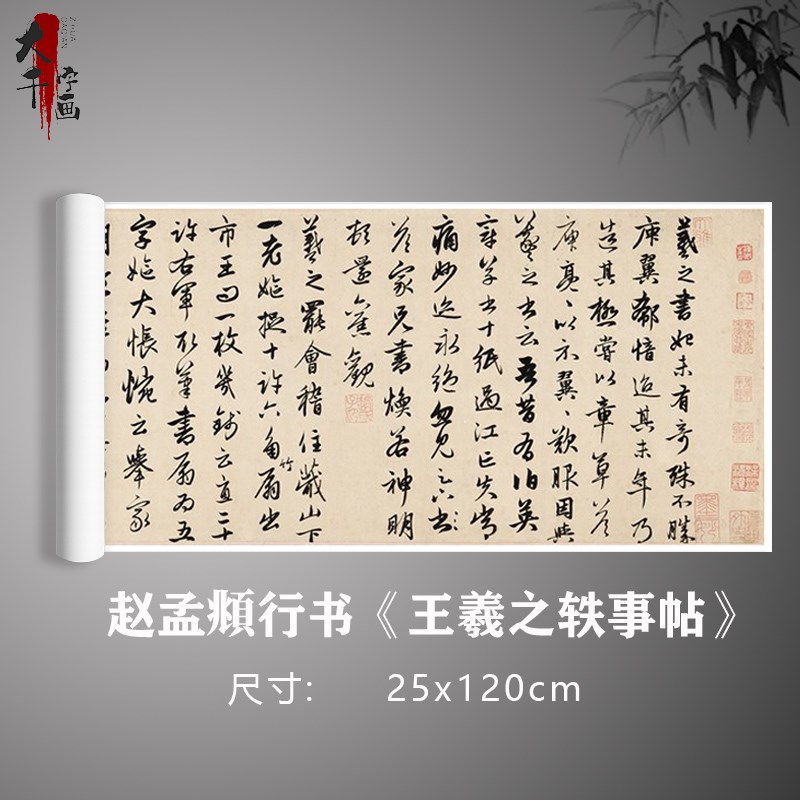 大千
字画
ZIHUA
DAQIAN
羲之書始未有奇殊不勝
庾翼郗愔迨其末年乃
造其極嘗以章草答
庾亮、以示翼、歎服因與
羲之書云吾昔有伯英
章草書十紙過江亡失常
痛妙迹永絶忽見足下書
答家兄書煥若神明
頓還舊觀
羲之罷會稽住蕺山下
一老嫗捉十許六角竹扇出
市王問一枚幾錢云直二十
許右軍取筆書扇為五
字嫗大悵惋云舉家
赵孟頫行书《王羲之轶事帖》
尺寸: 25x120cm